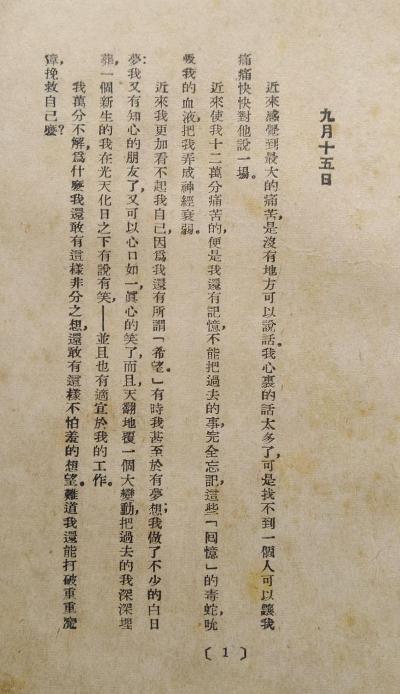 九月十五日
近來感覺到最大的痛苦,是沒有地方可以說話。我心裏的話太多了,可是找不到一個人可以讓我
痛痛快快對他說一場。
近來使我十二萬分痛苦的,便是我還有記憶,不能把過去的事完全忘記。這些「回憶」的毒蛇,吮
吸我的血液,把我弄成神經衰弱。
近來我更加看不起我自己,因爲我還有所謂「希望。」有時我甚至於有夢想;我做了不少的白日
夢:我又有知心的朋友了,又可以心口如一,眞心的笑了;而且天翻地覆一個大變動,把過去的我深深埋
葬,一個新生的我在光天化日之下有說有笑,——並且也有適宜於我的工作。
我萬分不解,爲什麽我還敢有這樣非分之想,還敢有這樣不怕羞的想望。難道我還能打破重重魔
障,挽救自己麽?
〔1〕